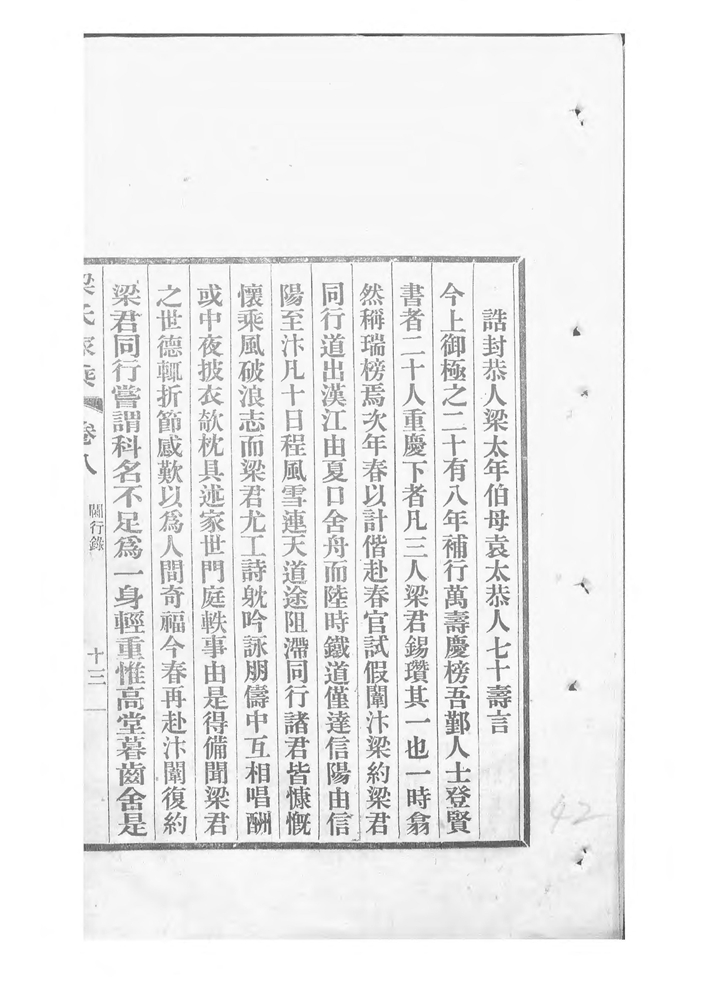 誥封恭人梁太年伯母袁太恭人七十壽言
今上御極之二十有八年補行萬壽慶榜吾鄞人士登賢
書者二十人重慶下者凡三人梁君錫瓚其一也一時翕
然稱瑞榜焉次年春以計偕赴春官試假闈汴梁約梁君
同行道出漢江由夏口舍舟而陸時鐵道僅達信陽由信
陽至汴凡十日程風雪連天道途阻滯同行諸君皆慷慨
懷乘風破浪志而梁君尤工詩躭吟詠朋儔中互相唱酬
或中夜披衣欹枕具述家世門庭軼事由是得備聞梁君
之世德輒折節感歎以爲人間奇福今春再赴汴闈復約
梁君同行嘗謂科名不足爲一身輕重惟高堂暮齒舍是
梁氏家乘 卷八 閫行錄 十三
42